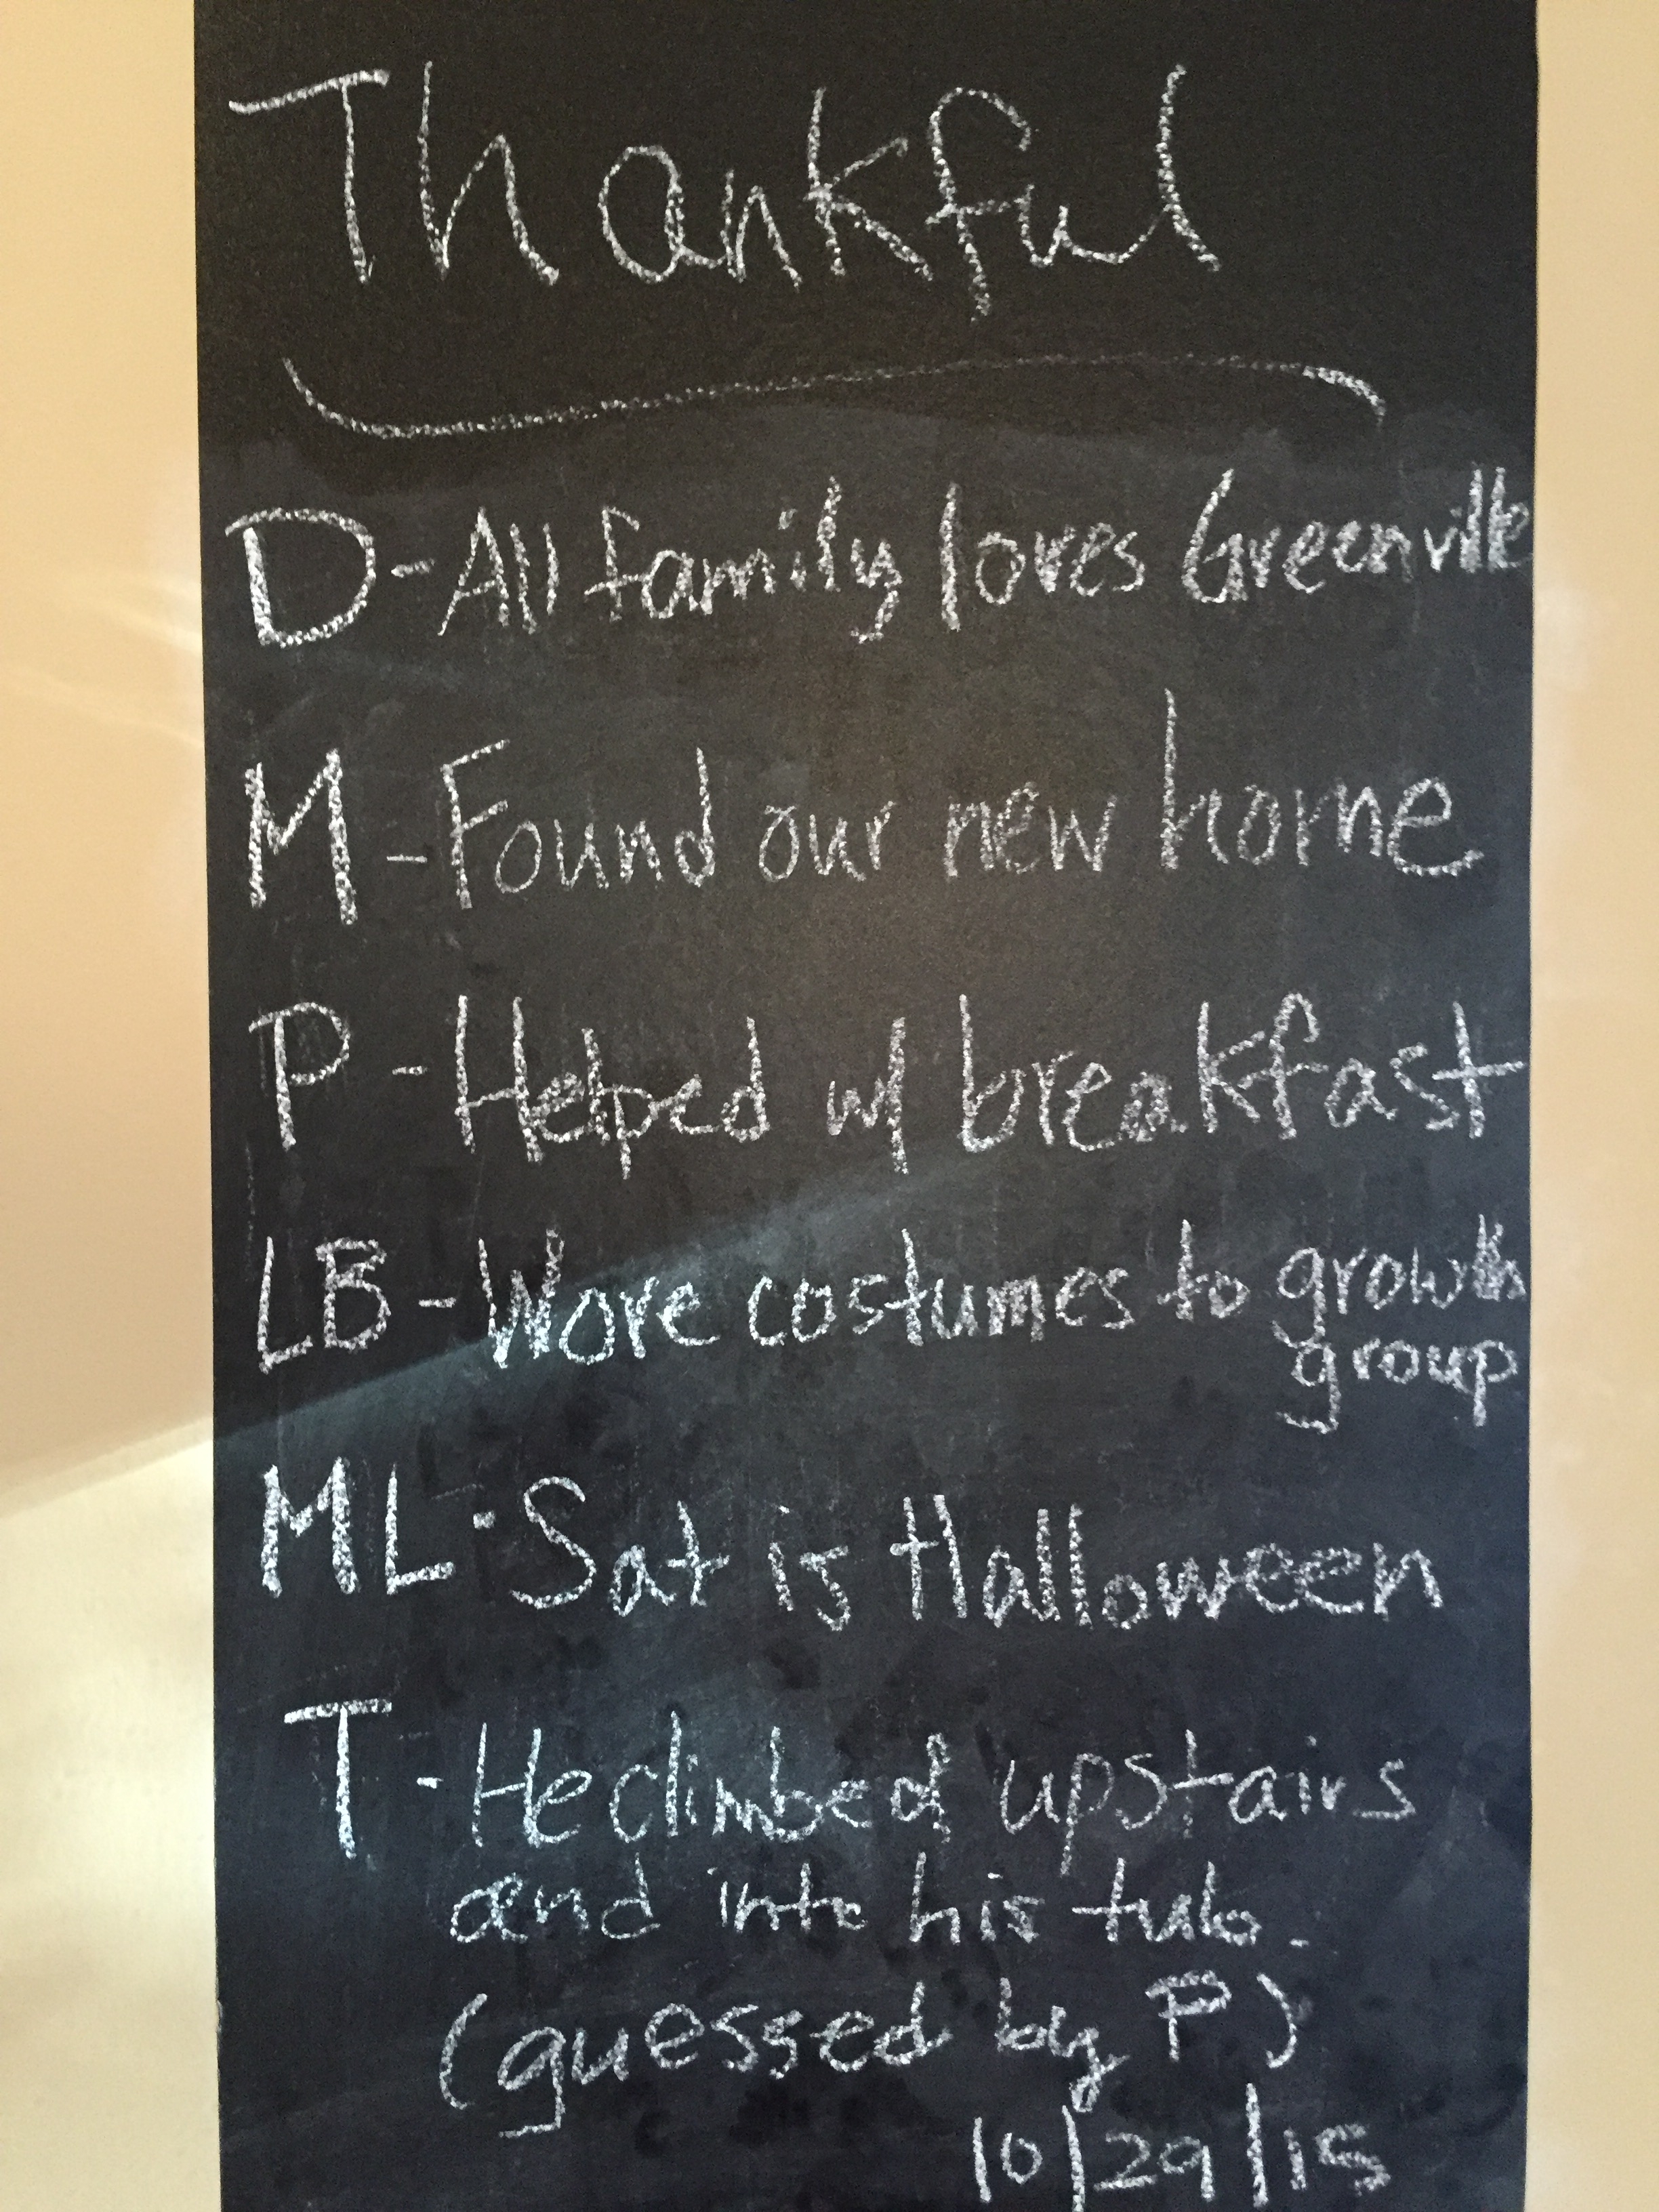 Thankful
D-All family loves Greenville
M-Found our new home
P-Helped w/ breakfast
LB-Wore costumes to growth
group
ML-Sat is Halloween
T-He climbed upstairs
and into his tub.
(guessed by P)
10/29/15